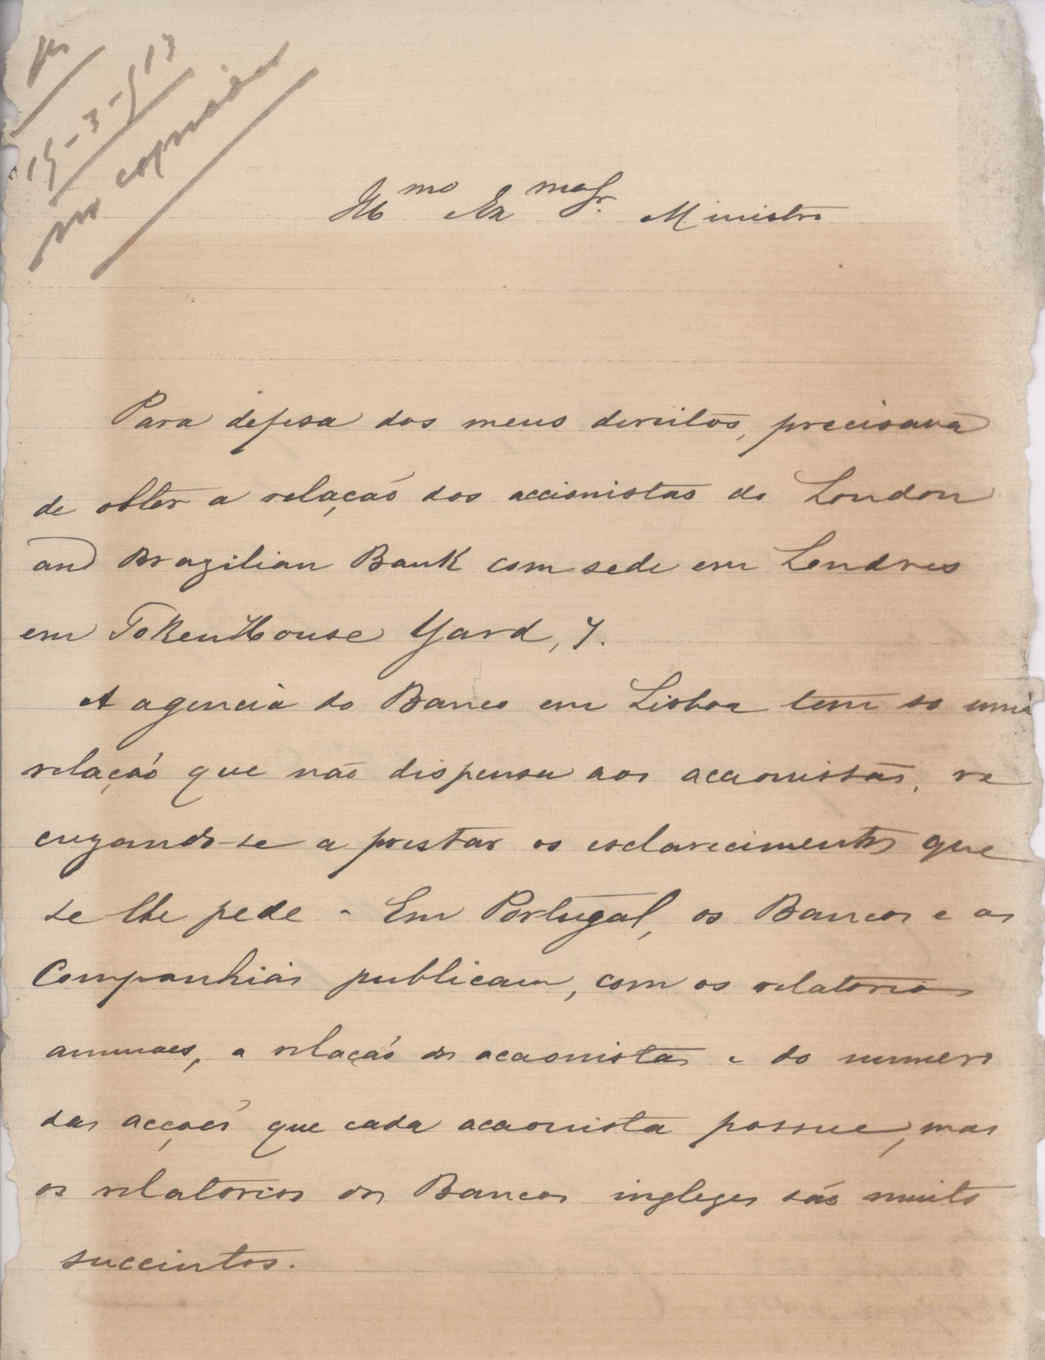 15-3-913
Ill.mo Ex.mo Sr. Ministro
Para defesa dos meus direitos, precisava
de obter a relação dos accionistas do London
and Brazilian Bank com sede em Londres
em TokenHouse Yard, 7.
A agencia do Banco em Lisboa tem so uma
relação que não dispensa aos accionistas, re
cuzando-se a prestar os esclarecimentos que
se lhe pede - Em Portugal, os Bancos e as
Companhias publicam, com os relatorios
annuaes, a relação dos accionistas e do numero
das acções que cada accionista possue, mas
os relatorios dos Bancos inglezes são muito
succintos.